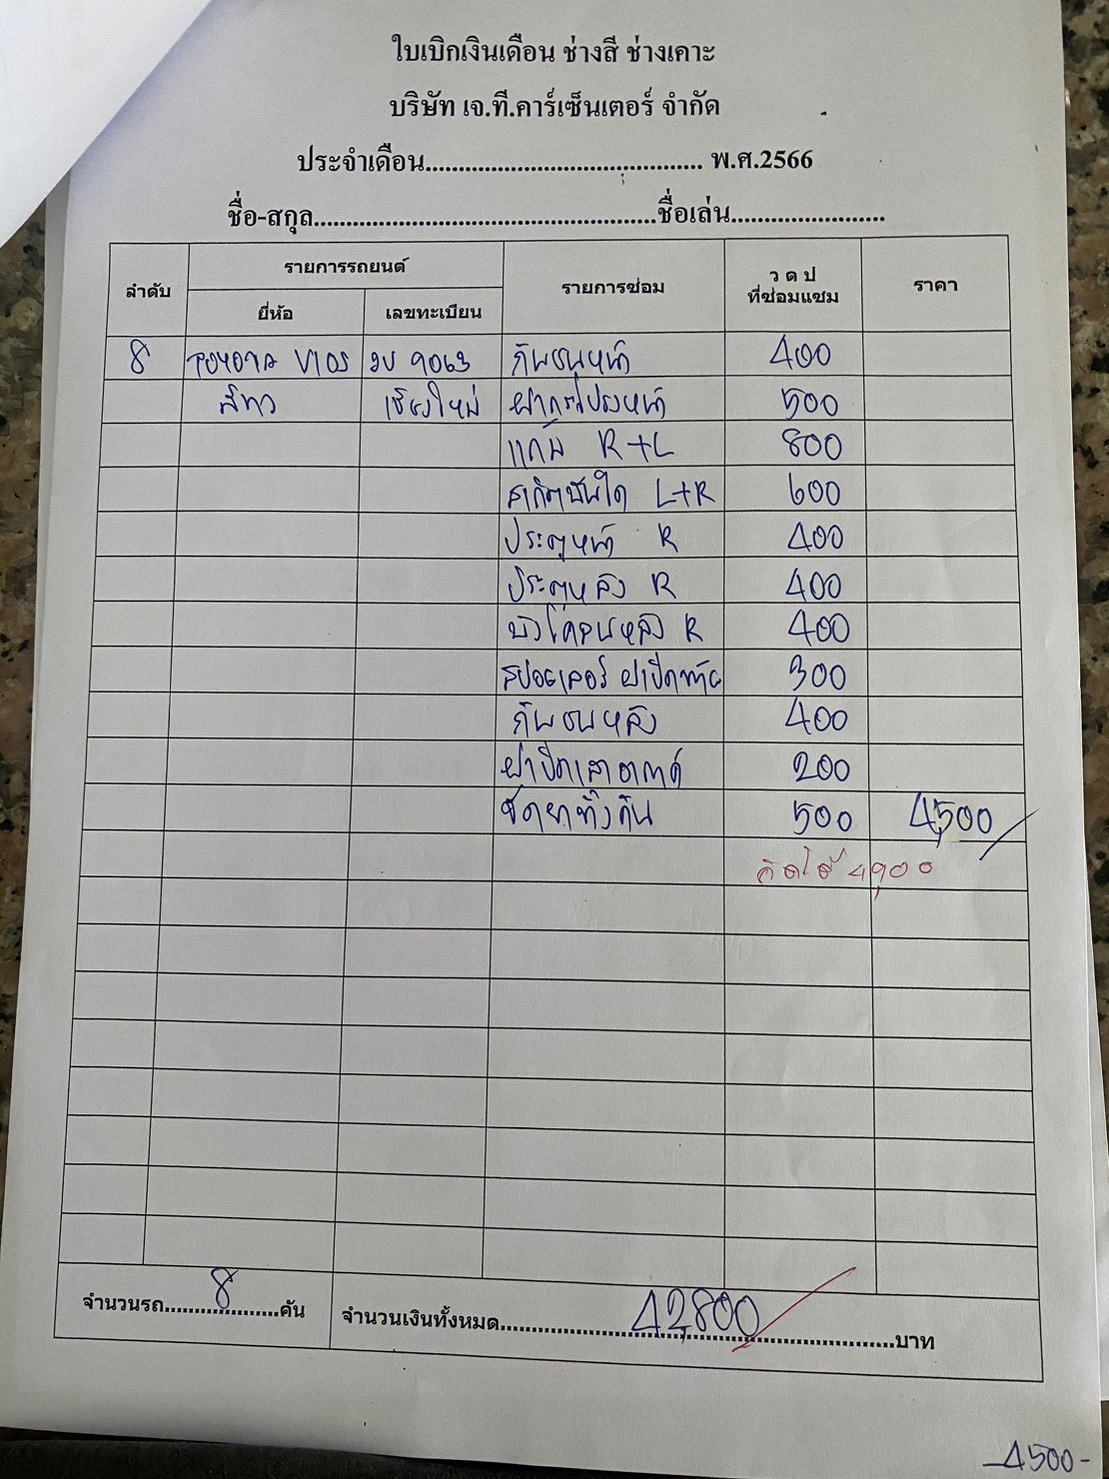 ใบเบิกเงินเดือน ช่างสี ช่างเคาะ
บริษัท เจ.ที.คาร์เซ็นเตอร์ จำกัด
ประจำเดือน.......................................... พ.ศ.2566
ชื่อ-สกุล.....................................................ชื่อเล่น........................
ลำดับ รายการรถยนต์ รายการซ่อม ว ด ป ที่ซ่อมแซม ราคา
ยี่ห้อ เลขทะเบียน
8 VIOS 9063 กันชนหน้า 400
สีเทา เชียงใหม่ ฝากระโปรงหน้า 500
แก้ม R+L 800
สเกิตบันได L+R 600
ประตูหน้า R 400
ประตูหลัง R 400
บังโคลนหลัง R 400
สปอยเลอร์ ฝาปิดท้าย 300
กันชนหลัง 400
ฝาปิดเสาอากาศ 200
ขัดยาทั้งคัน 500 4,500
คิดได้ 4,900
จำนวนรถ....8....คัน จำนวนเงินทั้งหมด....42,800....บาท
-4500-